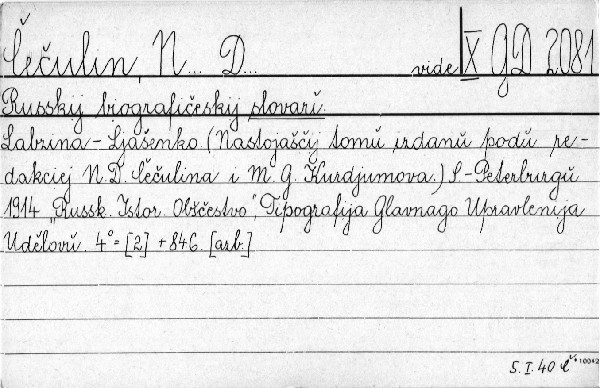 Čečulin, N... D... vide X GD 2081
Russkij biografičeskij slovarí.
Labzina - Ljašenko (Nastojaščij tomŭ izdanŭ podŭ re-
dakciej N. D. Čečulina i M. G. Kurdjumova.) S-Peterburgŭ
1914 "Russk. Istor. Obščestvo", Tipografija Glavnago Upravlenija
Udělovŭ. 4° = [2] + 846. [arb.]
5. I. 40 č *10042